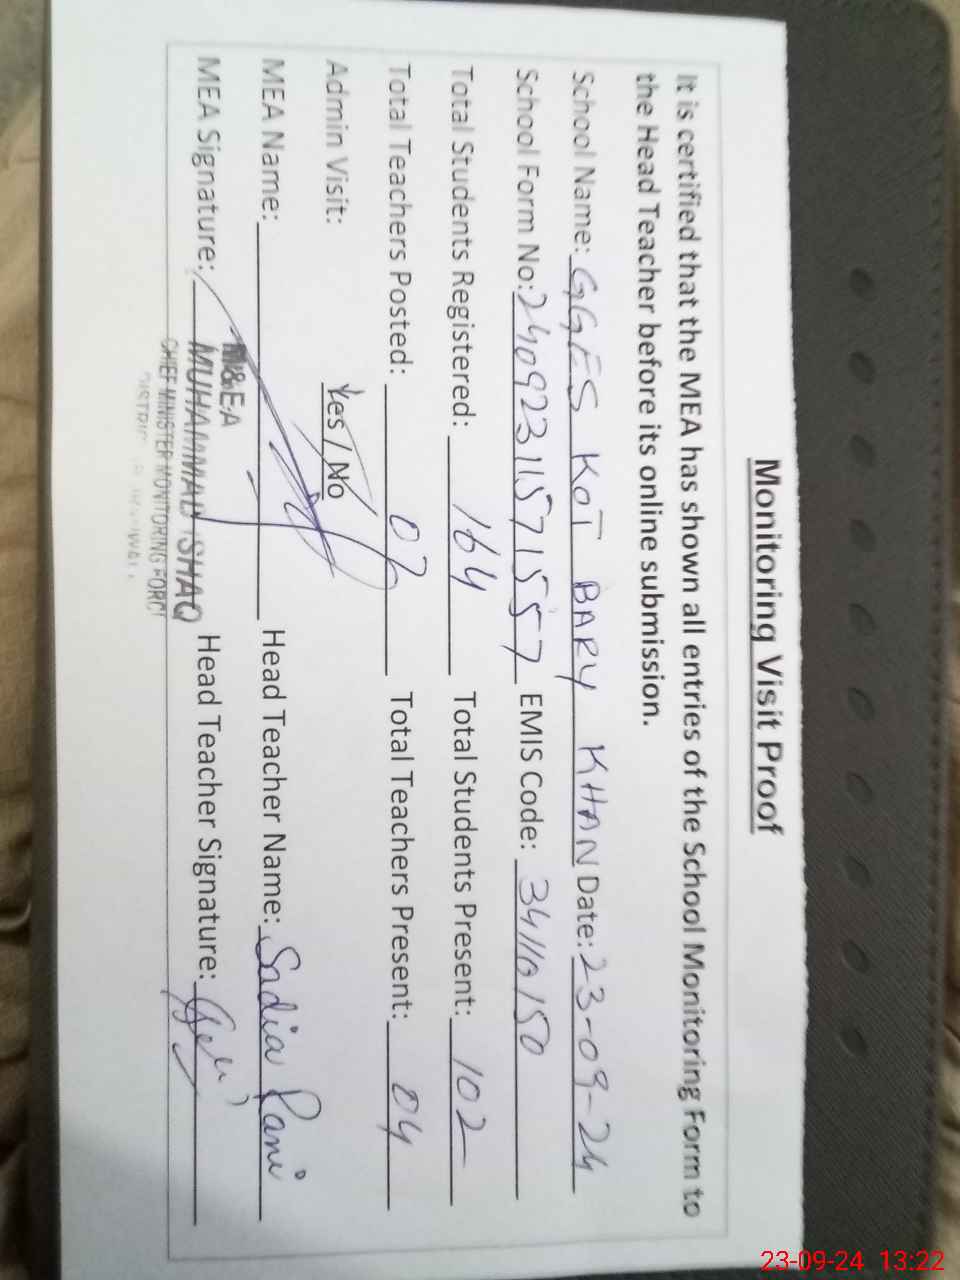 Monitoring Visit Proof
It is certified that the MEA has shown all entries of the School Monitoring Form to
the Head Teacher before its online submission.
School Name: GGES KOT BARY KHAN Date: 23-09-24
School Form No: 24092311571557 EMIS Code: 34110150
Total Students Registered: 164 Total Students Present: 102
Total Teachers Posted: 07 Total Teachers Present: 04
Admin Visit: Yes / No
MEA Name: Head Teacher Name: Sadia Rani
MEA Signature: Head Teacher Signature:
M&EA
MUHAMMAD ISHAQ
CHIEF MINISTER MONITORING FORC
DISTRIC
23-09-24 13:22